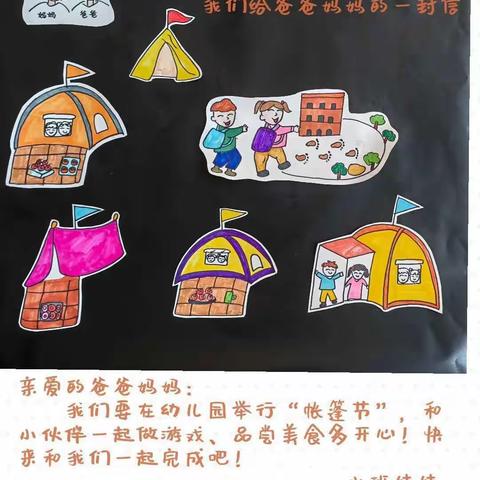 我们给爸爸妈妈的一封信
妈妈 爸爸
亲爱的爸爸妈妈：
我们要在幼儿园举行“帐篷节”，和
小伙伴一起做游戏、品尝美食多开心！快
来和我们一起完成吧！